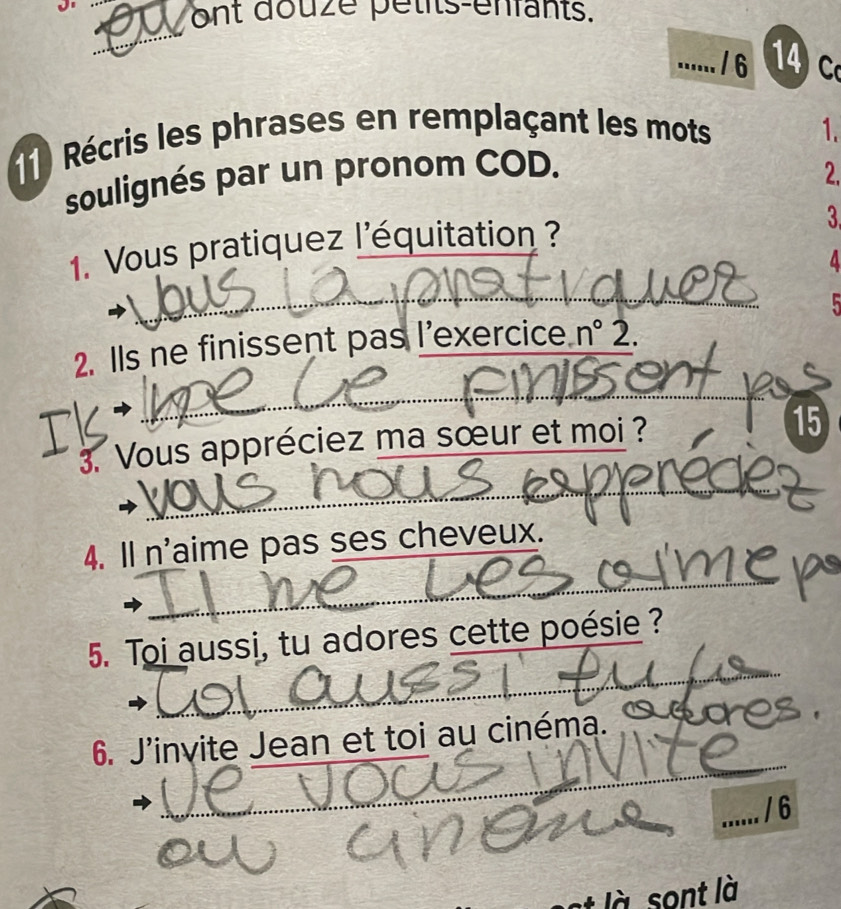 3.
eu ont douze petits-enfants.
...... / 6
14
11 Récris les phrases en remplaçant les mots
soulignés par un pronom COD.
1.
2.
3.
4
5
1. Vous pratiquez l'équitation ?
→ Vous la pratiquez
2. Ils ne finissent pas l'exercice n° 2.
→ Ils ne le finissent pas
15
3. Vous appréciez ma sœur et moi ?
→ vous nous appréciez
4. Il n'aime pas ses cheveux.
→ Il ne les aime
5. Toi aussi, tu adores cette poésie ?
→ Toi aussi tu la
adores.
6. J'invite Jean et toi au cinéma.
→ Je vous invite
au
...... / 6
là sont là